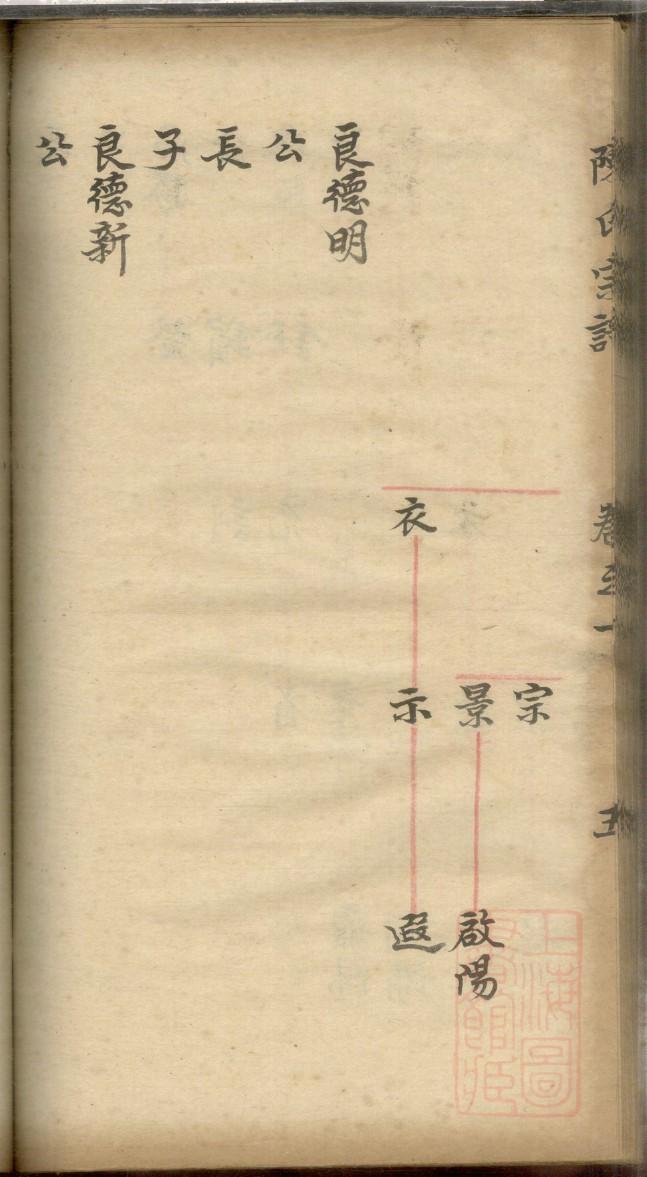 陳氏宗譜 卷三十 五
宗
景 啟陽
衣 示 遐
良德明
公
長
子
良德新
公
上海圖書館藏